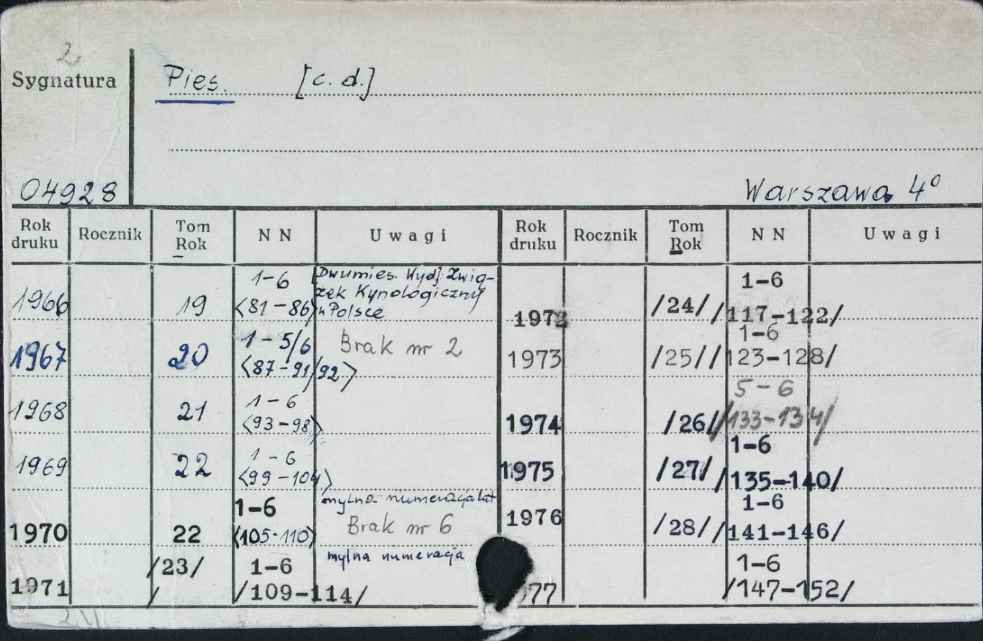 2
Sygnatura
Pies. [c. d.]
04928
Warszawa 4°
Rok druku Rocznik Tom Rok N N Uwagi Rok druku Rocznik Tom Rok N N Uwagi
1966 19 1-6 <81-86>
[Dwumies. Wyd.] Zwią-
zek Kynologiczny
w Polsce
1967 20 1-5/6 <87-91/92> Brak nr 2
1968 21 1-6 <93-98>
1969 22 1-6 <99-104>
1970 22 1-6 <105-110> mylna numeracja lat
Brak nr 6
1971 /23/ 1-6 /109-114/ mylna numeracja
1972 /24/ 1-6 /117-122/
1973 /25/ 1-6 /123-128/
1974 /26/ 5-6 /133-134/
1975 /27/ 1-6 /135-140/
1976 /28/ 1-6 /141-146/
77 1-6 /147-152/